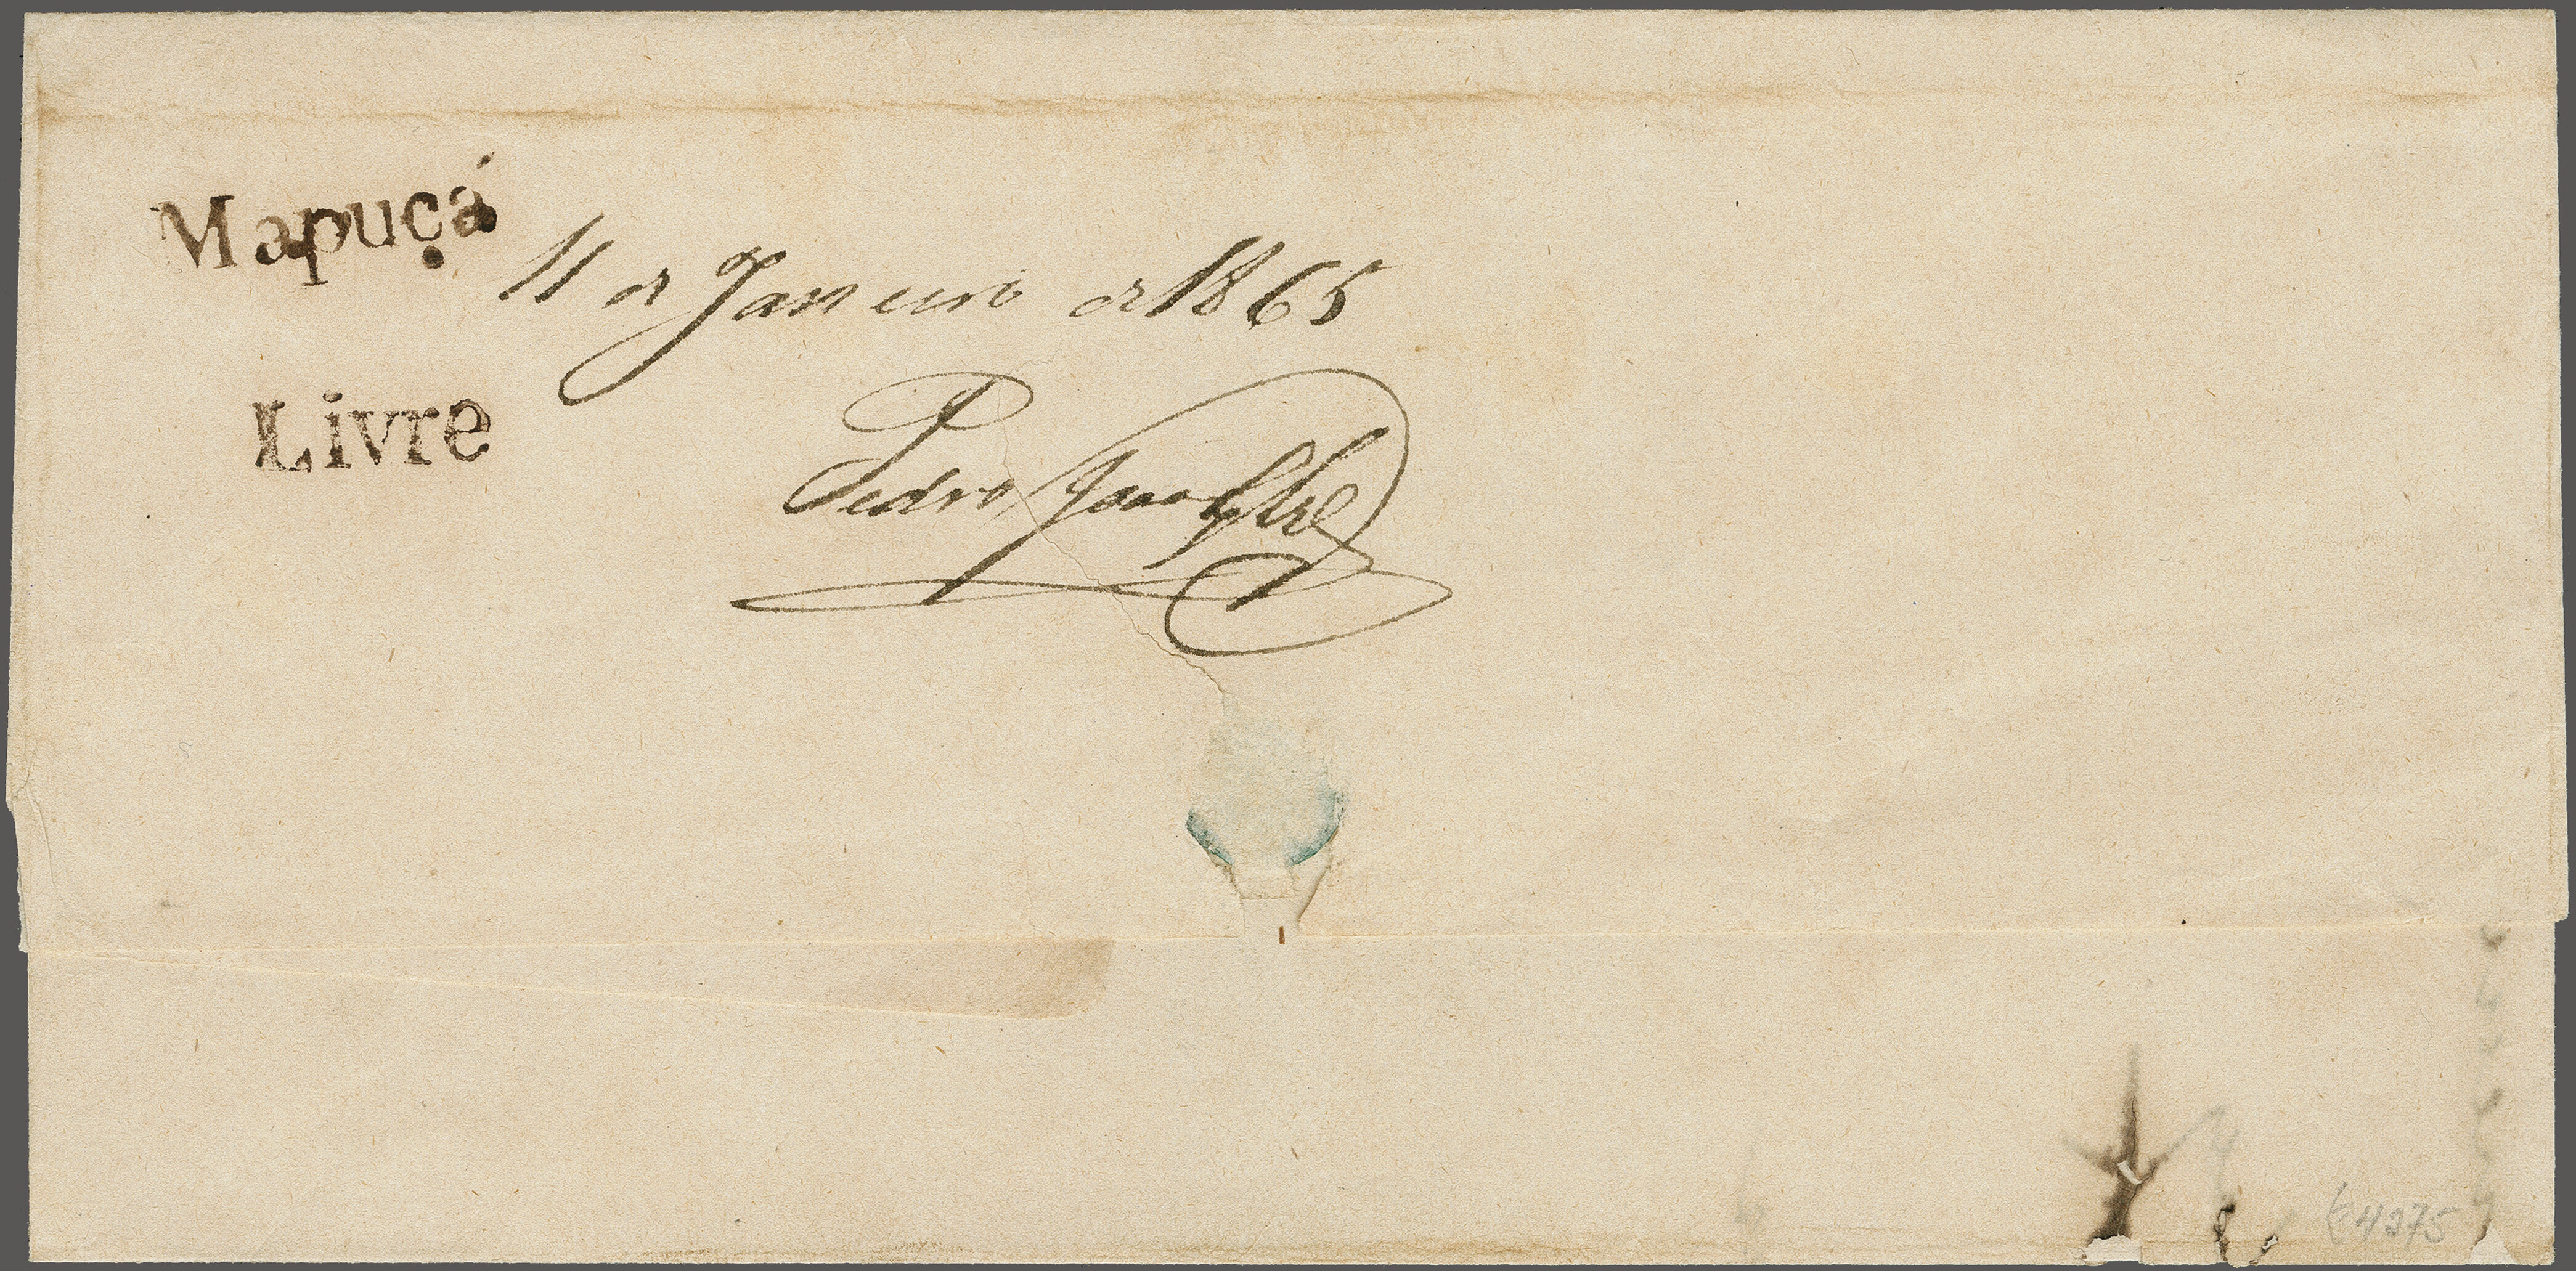 Mapuçá
11 de Janeiro de 1865
Livre
Pedro
4275